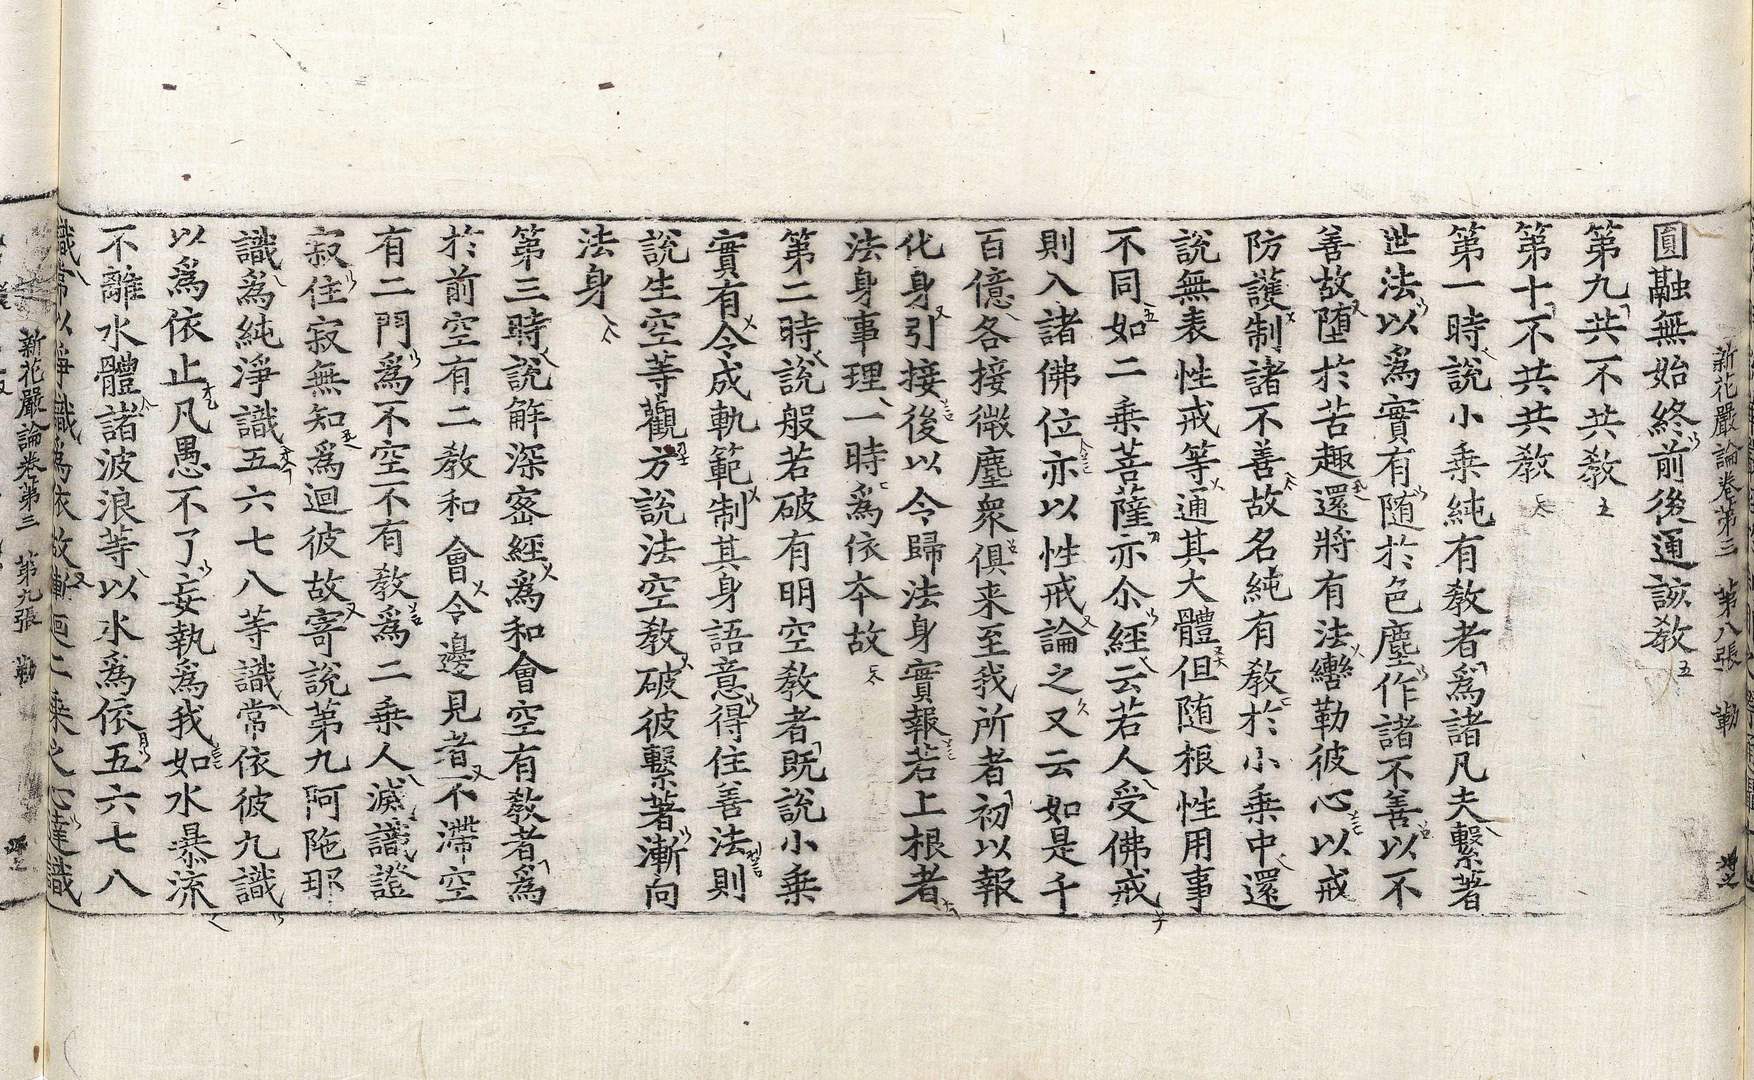 新花嚴論卷第三 第八張 勒
圓融無始終前後通該敎
第九共不共敎
第十不共共敎
第一時說小乘純有敎者爲諸凡夫繫著
世法以爲實有随於色塵作諸不善以不
善故堕於苦趣還將有法轡勒彼心以戒
防護制諸不善故名純有敎於小乘中還
說無表性戒等通其大體但随根性用事
不同如二乘菩薩亦尒經云若人受佛戒
則入諸佛位亦以性戒論之又云如是千
百億各接微塵衆俱来至我所者初以報
化身引接後以令歸法身實報若上根者
法身事理一時爲依夲故
第二時說般若破有明空敎者旣說小乘
實有令成軌範制其身語意得住善法則
說生空等觀方說法空敎破彼繫著漸向
法身
第三時說解深密經爲和會空有敎者爲
於前空有二敎和會令邊見者不滯空
有二門爲不空不有敎爲二乘人滅識證
寂住寂無知爲迴彼故寄說第九阿陁耶
識爲純淨識五六七八等識常依彼九識
以爲依止凡愚不了妄執爲我如水暴流
不離水體諸波浪等以水爲依五六七八
識常以淨識爲依故漸迴二乘之心達識
新花嚴論卷第三 第九張 勒